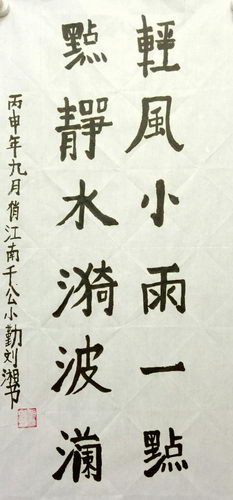 輕風小雨一點
點靜水漪波瀾
丙申年九月俏江南千公小勤刘湘书